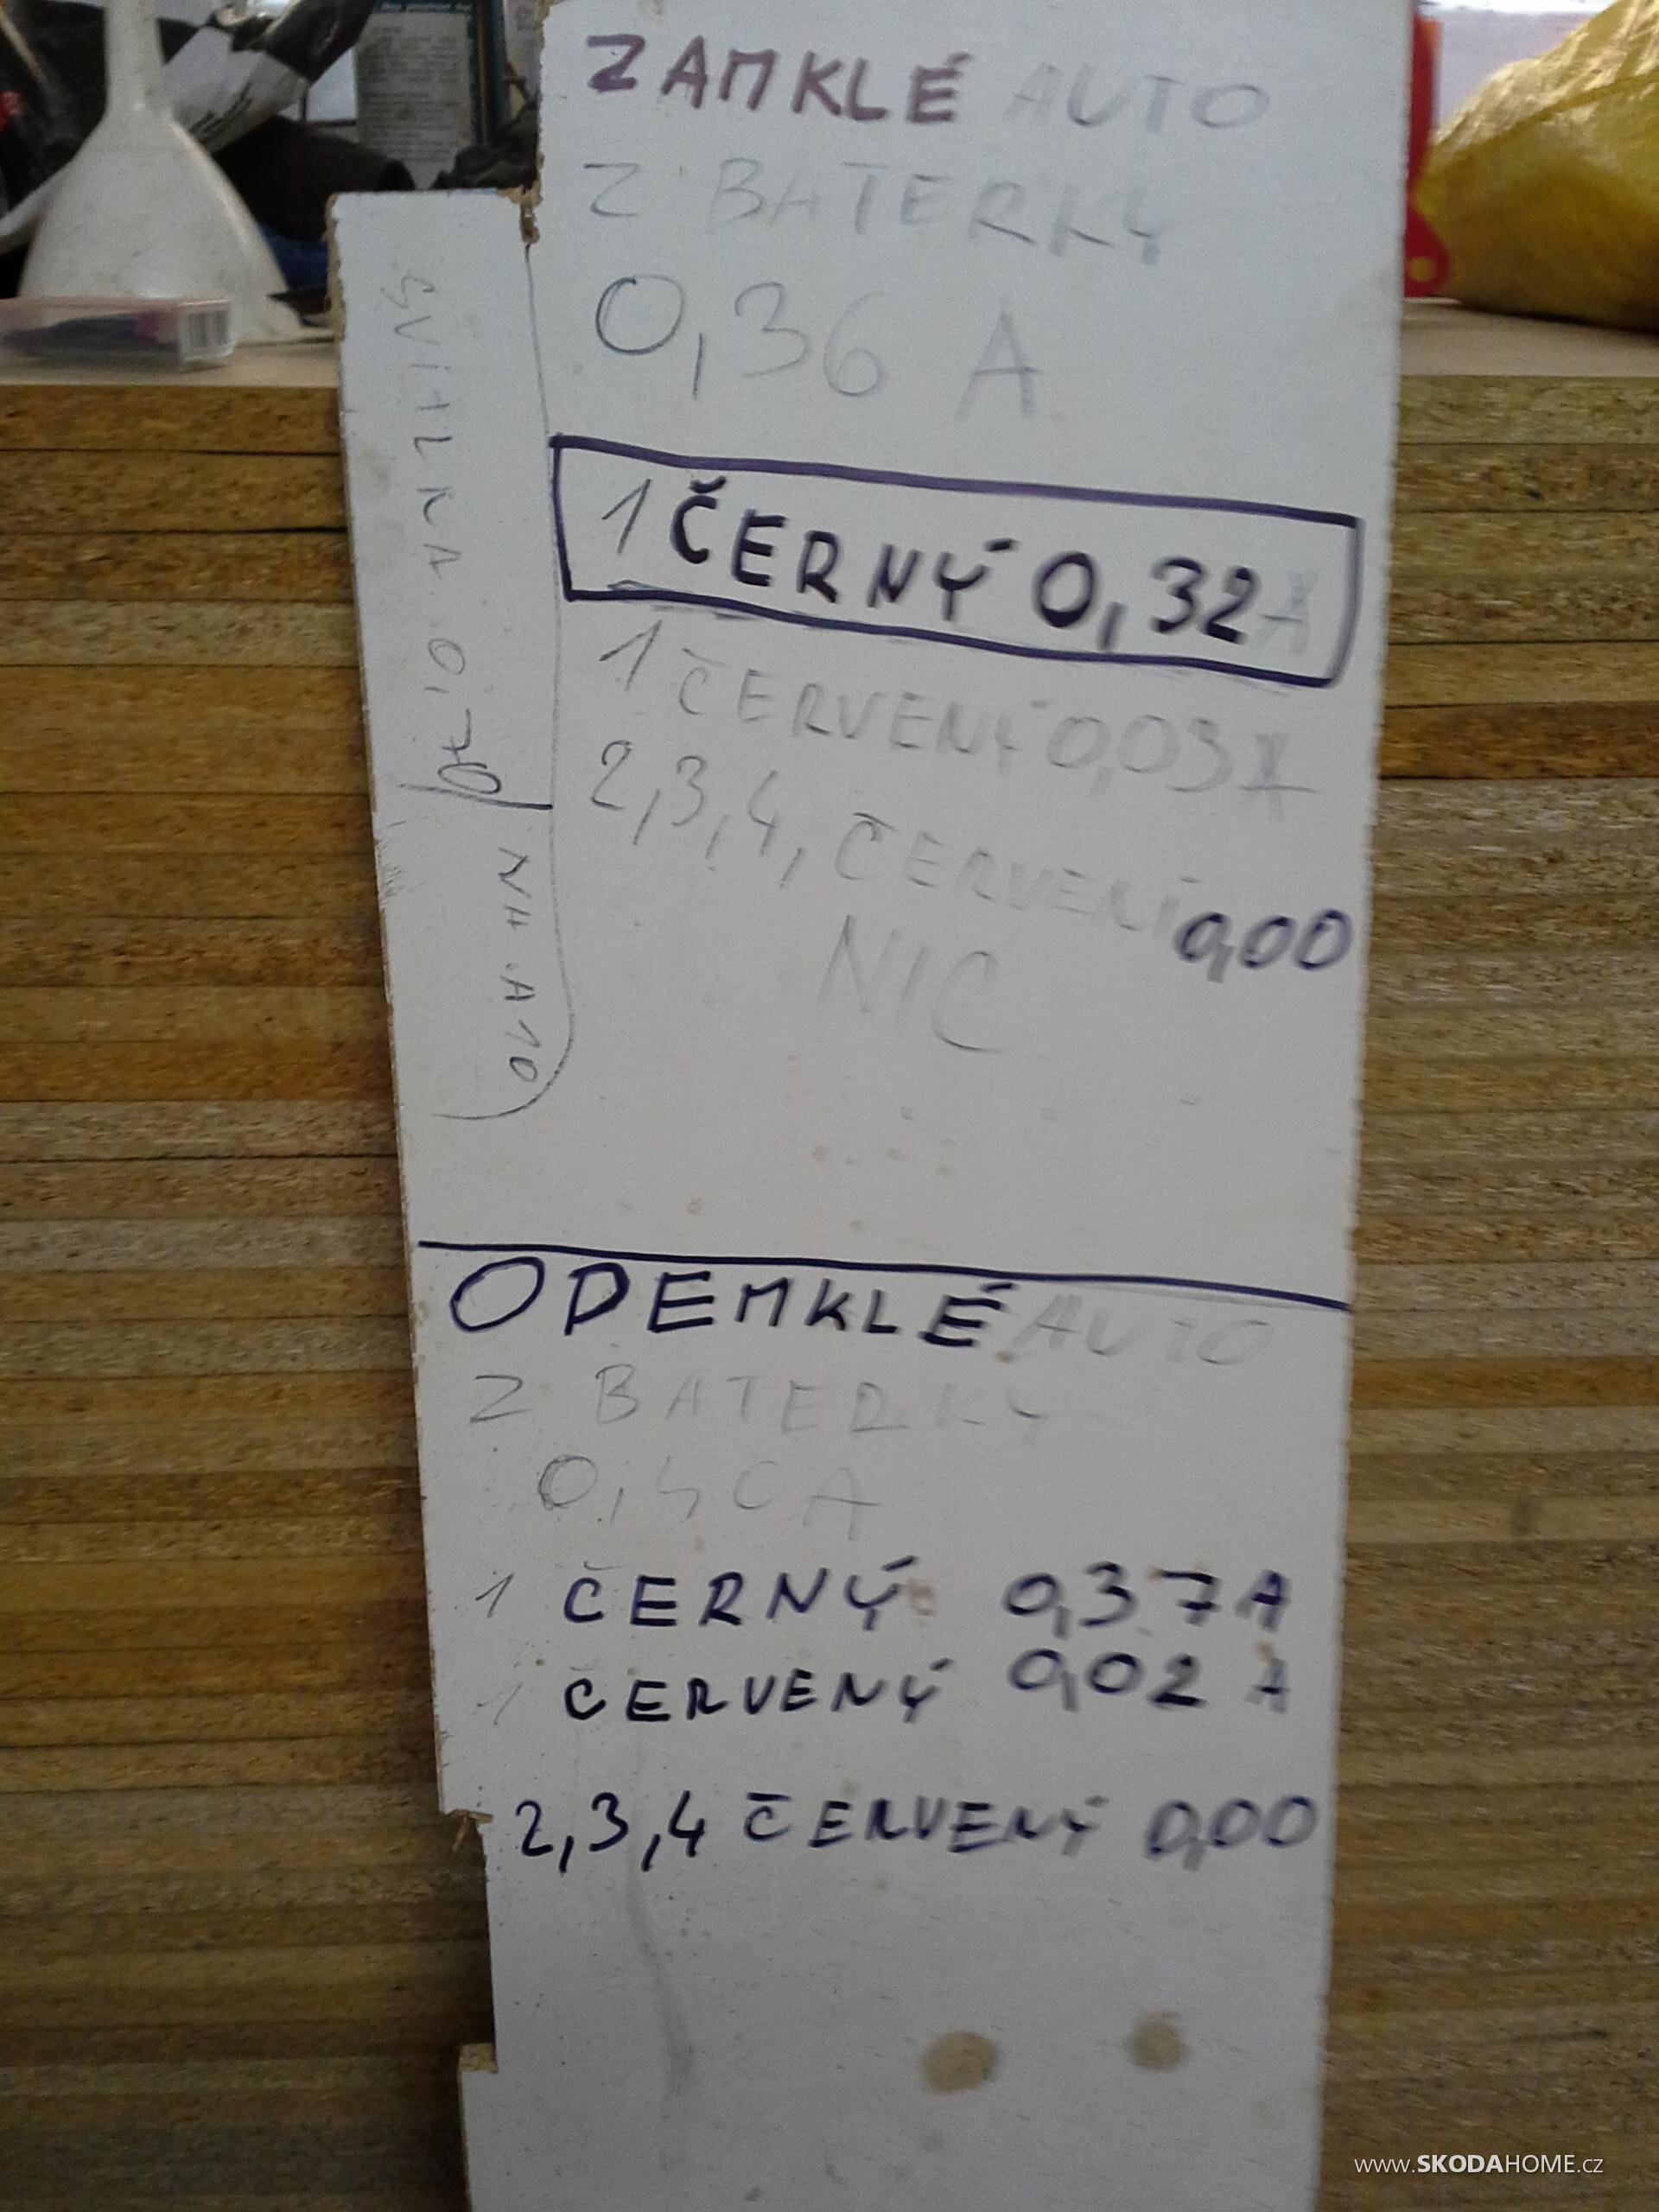 ZAMKLÉ AUTO
Z BATERKY
0,36 A
1 ČERNÝ 0,32 A
1 ČERVENÝ 0,03
2,3,4, ČERVENÝ 0,00
NIC
SVÍTILNA 0,70
NA A10
ODEMKLÉ AUTO
Z BATERKY
0,40A
1 ČERNÝ 0,37A
1 ČERVENÝ 0,02 A
2,3,4 ČERVENÝ 0,00
www.SKODAHOME.cz